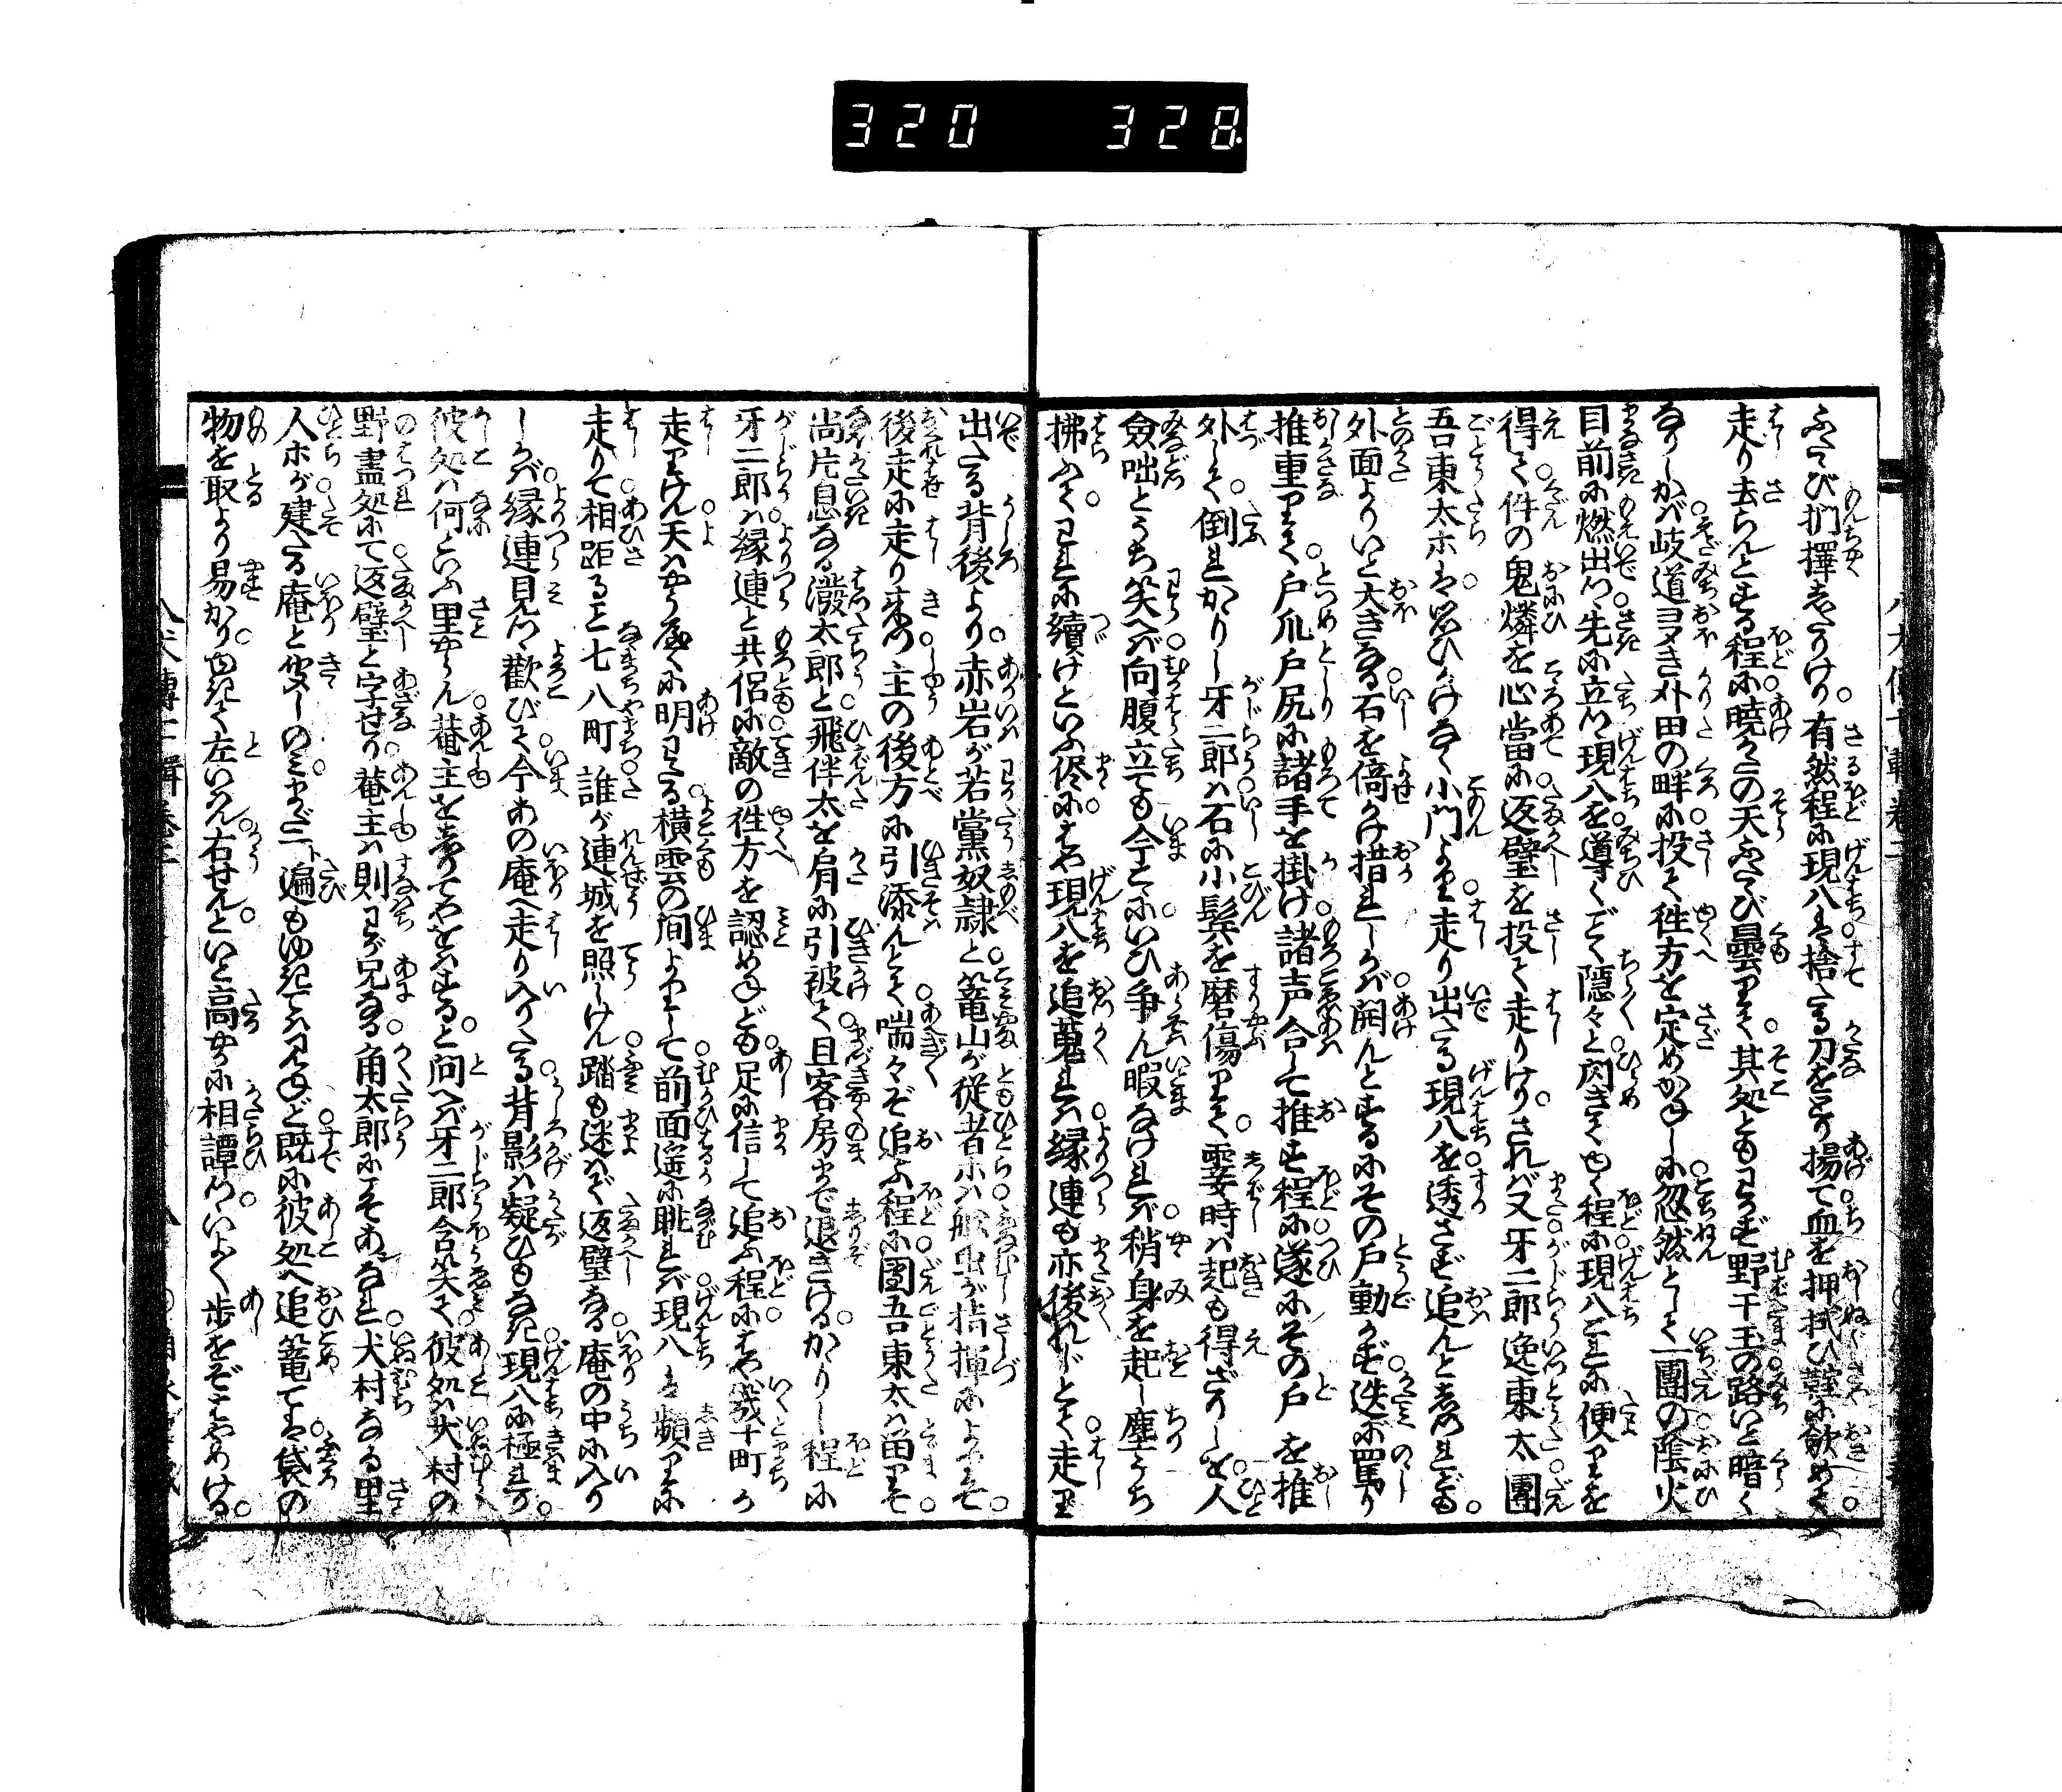 320 328
ふたゝび捫擇してけり。有然程に現八は捨たる刀をとり揚て血を押拭ひ鞘に歛めて
走り去らんとする程に暁かたの天ふたゝび曇りて。其処ともわかず野干玉の路いと暗く
なりしかば岐道多き外田の畔に投て徃方を定めかねしに忽然として一團の陰火
目前に燃出つ先に立つ現八を導くごとく隱々と閃きてゆく程に現八これに便りを
得て件の鬼燐を心當に返璧を投て走りけり。されば又牙二郎逸東太團
吾東太ホは思ひかけなく小門より走り出たる現八を透さず追んとしぬれども。
外面よりいと大きなる石を倚かけ措れしかば開んとするにその戸動かず迭に罵り
推重りて戸爪戸尻に諸手を掛け諸声合して推す程に遂にその戸を推
外して倒れかゝりし牙二郎は石に小鬢を磨傷りて。霎時は起も得ざりしを人
僉咄とうち笑へば向腹立ても今さらにいひ争ん暇なければ稍身を起し塵うち
拂ふて。われに續けといふ侭にはや現八を追蒐れは縁連も亦後れじとて走り
出たる背後より。赤岩が若黨奴隷。と篭山が従者ホは舩虫が指揮によりてぞ。
後走に走り来つ主の後方に引添んとて喘々ぞ追ふ程に團吾東太は留りて
尚片息なる溌太郎と飛伴太を肩に引被て且客房まで退きける。かゝりし程に
牙二郎は縁連と共侶に敵の徃方を認めねども足に信して追ふ程にはや幾十町か
走りけん天はやう々に明わたる横雲の間よりして前面遥に眺れば現八は頻りに
走りて相距ること七八町誰が連城を照しけん踏も迷はで返璧なる庵の中に入り
しかば縁連見つゝ歡びて今あの庵へ走り入りたる背影は疑ひもなき現八に極れり。
彼処は何といふ里やらん菴主をしりてやをはすると。問へば牙二郎含笑て彼処は犬村の
野盡処にて返璧と字せり菴主は則わが兄なる角太郎にこそあなれ犬村なる里
人ホが建たる庵と聞しのみ。まだ一遍もゆきては見ねど既に彼処へ追篭ては袋の
物を取より易かり。ゆきて左いはん右せんといと高やかに相譚つ。いよゝ歩をぞはやめける。